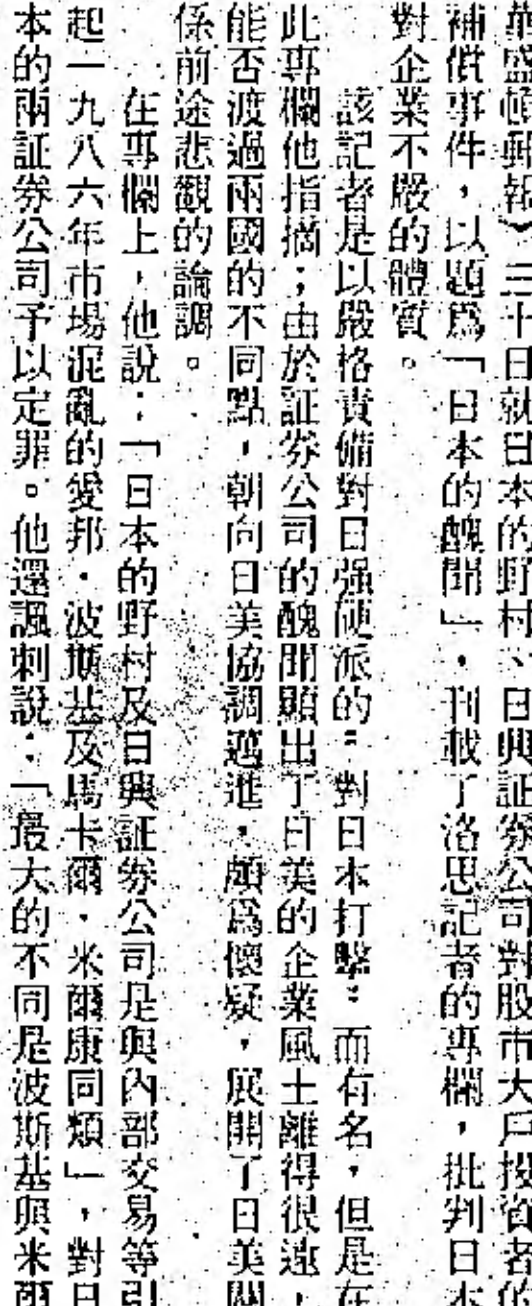 華盛頓郵報〉三十日就日本的野村、日興証券公司對股市大戶投資者的
補償事件，以題爲「日本的醜聞」，刊載了洛思記者的專欄，批判日本
對企業不嚴的體質。
該記者是以嚴格責備對日强硬派的〝對日本打擊〞而有名，但是在
此專欄他指摘；由於証券公司的醜聞顯出了日美的企業風土離得很遠，
能否渡過兩國的不同點，朝向日美協調邁進，頗爲懷疑，展開了日美關
係前途悲觀的論調。
在專欄上，他說：「日本的野村及日興証券公司是與內部交易等引
起一九八六年市場混亂的愛邦・波斯基及馬卡爾・米爾康同類」，對日
本的兩証券公司予以定罪。他還諷刺說：「最大的不同是波斯基與米爾